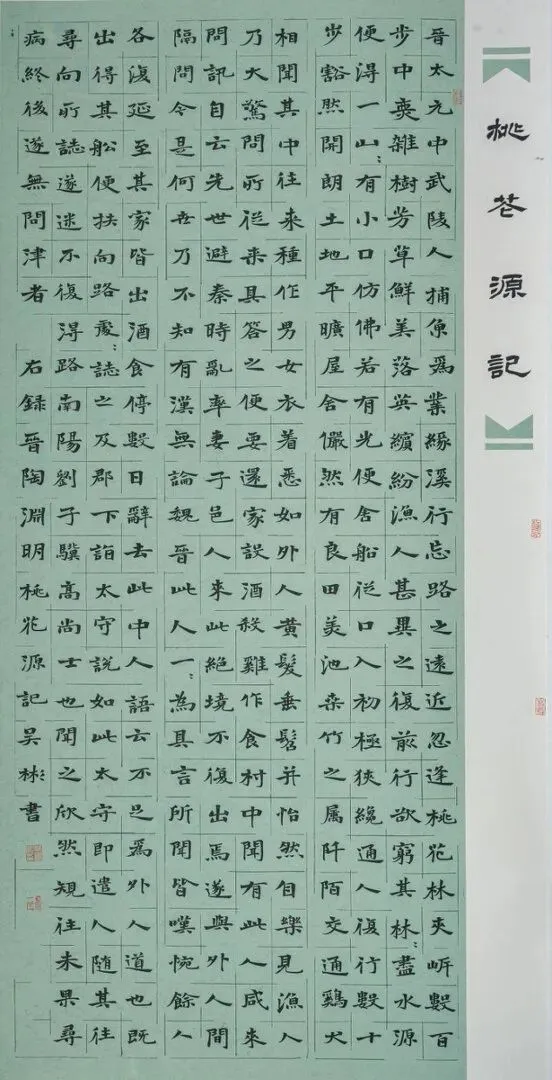 桃花源記
晉太元中武陵人捕魚爲業緣溪行忘路之遠近忽逢桃花林夾岸數百
步中無雜樹芳草鮮美落英繽紛漁人甚異之復前行欲窮其林:盡水源
便得一山:有小口仿佛若有光便舍船從口入初極狹纔通人復行數十
步豁然開朗土地平曠屋舍儼然有良田美池桑竹之属阡陌交通鷄犬
相聞其中往來種作男女衣着悉如外人黄髮垂髫并怡然自樂見漁人
乃大驚問所從来具答之便要還家設酒殺雞作食村中聞有此人咸來
問訊自云先世避秦時亂率妻子邑人來此絕境不復出焉遂與外人間
隔問今是何世乃不知有漢無論魏晉此人一:為具言所聞皆嘆惋餘人
各復延至其家皆出酒食停數日辭去此中人語云不足爲外人道也既
出得其船便扶向路處:誌之及郡下詣太守說如此太守即遣人隨其往
尋向所誌遂迷不復得路南陽劉子驥高尚士也聞之欣然規往未果尋
病終後遂無問津者 右錄晉陶淵明桃花源記吴彬書